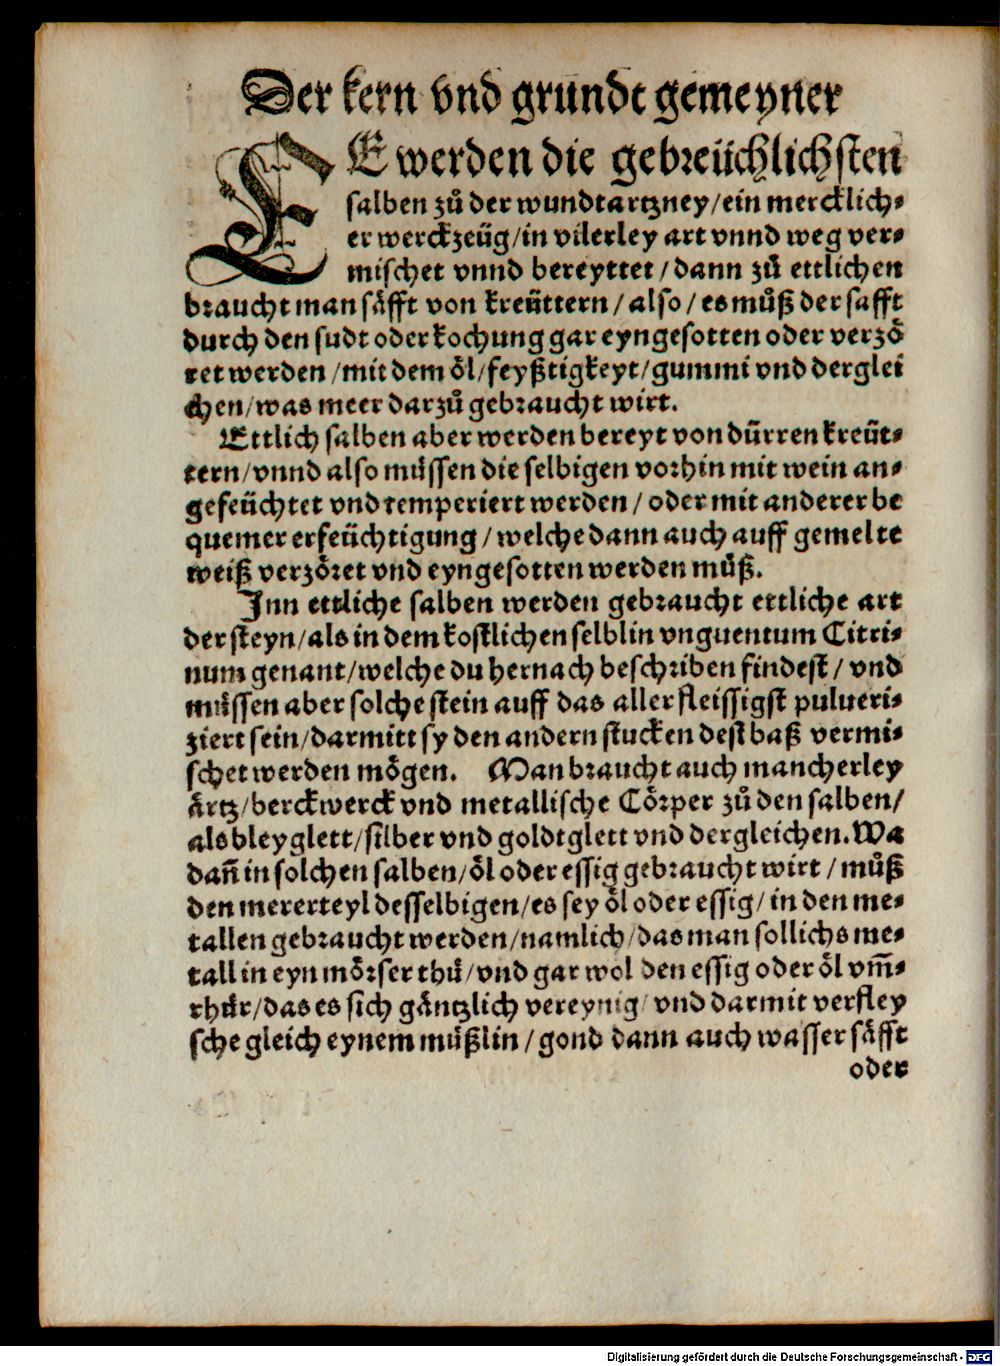 Der kern vnd grundt gemeyner
EE werden die gebreüchlichsten
salben zů der wundtartzney/ein mercklich⸗
er werckzeüg/in vilerley art vnnd weg ver⸗
mischet vnnd bereyttet/dann zů ettlichen
braucht man säfft von kreüttern/also/es můß der safft
durch den sudt oder kochung gar eyngesotten oder verzö
ret werden/mit dem öl/feyßtigkeyt/gummi vnd derglei
chen/was meer darzů gebraucht wirt.
Ettlich salben aber werden bereyt von dürren kreüt⸗
tern/vnnd also müssen die selbigen vorhin mit wein an⸗
gefeüchtet vnd temperiert werden/oder mit anderer be
quemer erfeüchtigung/welche dann auch auff gemelte
weiß verzöret vnd eyngesotten werden můß.
Inn ettliche salben werden gebraucht ettliche art
der steyn/als in dem kostlichen selblin vnguentum Citri⸗
num genant/welche du hernach beschriben findest/vnd
müssen aber solche stein auff das aller fleissigst pulueri⸗
ziert sein/darmitt sy den andern stucken dest baß vermi⸗
schet werden mögen. Man braucht auch mancherley
ärtz/berckwerck vnd metallische Cörper zů den salben/
als bleyglett/silber vnd goldtglett vnd dergleichen. Wa
dañ in solchen salben/öl oder essig gebraucht wirt/můß
den mererteyl desselbigen/es sey öl oder essig/in den me⸗
tallen gebraucht werden/namlich/das man sollichs me⸗
tall in eyn mörser thů/vnd gar wol den essig oder öl vm̃⸗
rhür/das es sich gäntzlich vereynig/vnd darmit verfley
sche gleich eynem můßlin/gond dann auch wasser säfft
oder
Digitalisierung gefördert durch die Deutsche Forschungsgemeinschaft - DFG